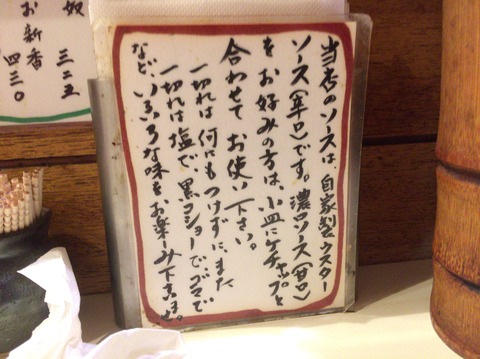 当店のソースは、自家製ウスター
ソース(辛口)です。濃口ソース(甘口)
をお好みの方は、小皿にケチャップと
合わせて お使い下さい。
一切れは 何にもつけずに、また
一切れは塩で、黒コショーで、ゴマで
など、いろいろな味をお楽しみ下さいませ。
奴 三二五
お新香 四三〇